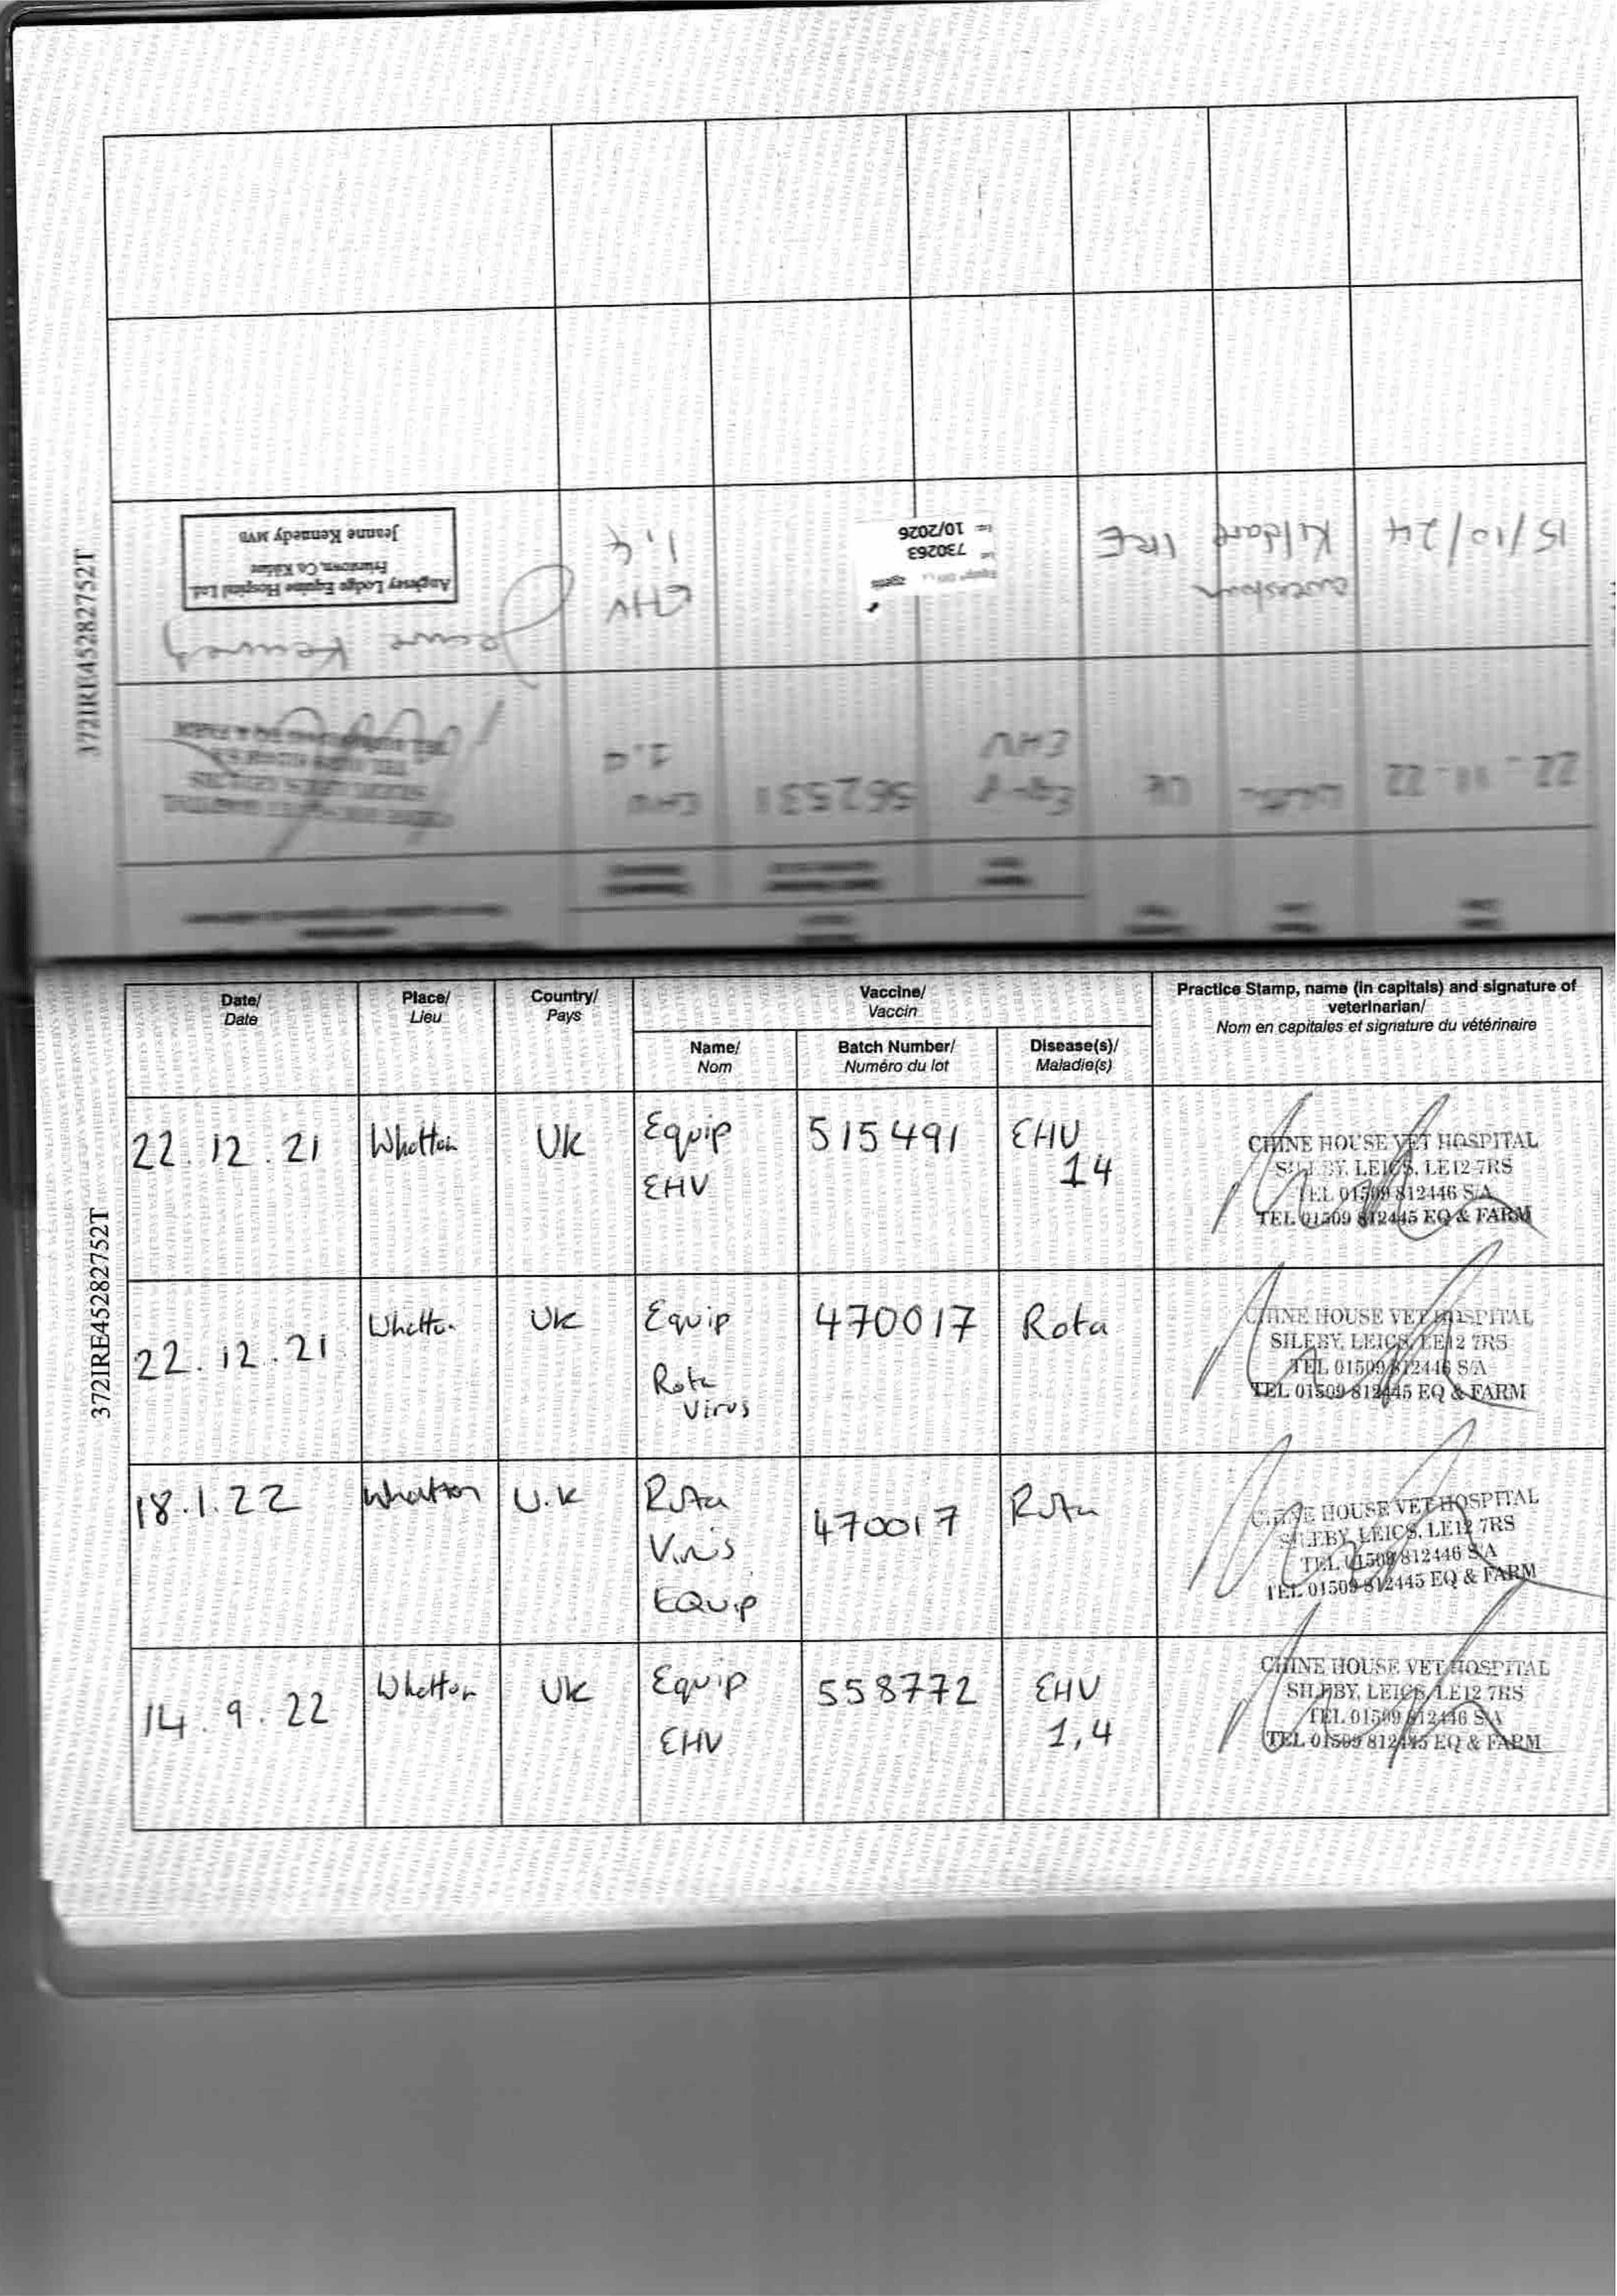 372IRE45282752T
Date/ Date
Place/ Lieu
Country/ Pays
Vaccine/ Vaccin
Name/ Nom
Batch Number/ Numéro du lot
Disease(s)/ Maladie(s)
Practice Stamp, name (in capitals) and signature of veterinarian/
Nom en capitales et signature du vétérinaire
22.12.21 Whatton UK Equip EHV 515491 EHV 14
CHINE HOUSE VET HOSPITAL
SILEBY, LEICS, LE12 7RS
TEL 01509 812446 S/A
TEL 01509 812445 EQ & FARM
22.12.21 Whatton UK Equip Rota Virus 470017 Rota
CHINE HOUSE VET HOSPITAL
SILEBY, LEICS, LE12 7RS
TEL 01509 812446 S/A
TEL 01509 812445 EQ & FARM
18.1.22 Whatton U.K Rota Virus EQuip 470017 Rota
CHINE HOUSE VET HOSPITAL
SILEBY, LEICS, LE12 7RS
TEL 01509 812446 S/A
TEL 01509 812445 EQ & FARM
14.9.22 Whatton UK Equip EHV 558772 EHV 1,4
CHINE HOUSE VET HOSPITAL
SILEBY, LEICS, LE12 7RS
TEL 01509 812446 S/A
TEL 01509 812445 EQ & FARM
372IRE45282752T
22-11-22 UK Equip EHV 562531 EHV 1.4
15/10/24 Kildare IRE
Equip EHV 1,4 zoetis
Lot 730263
10/2026
EHV 1.4
Jeanne Kennedy
Anglesey Lodge Equine Hospital Ltd.
Co. Kildare
Jeanne Kennedy MVB